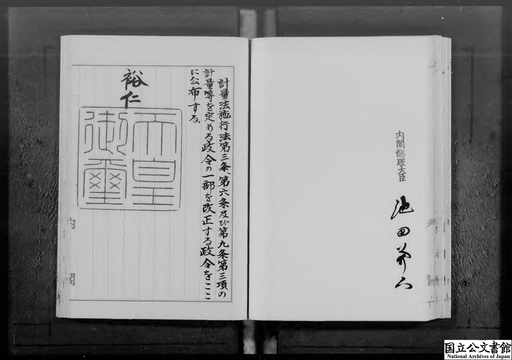 内閣総理大臣
池田勇人
計量法施行法第三条、第六条及び第九条第三項の
計量等を定める政令の一部を改正する政令をここ
に公布する。
裕仁
天皇
御璽
国立公文書館
National Archives of Japan